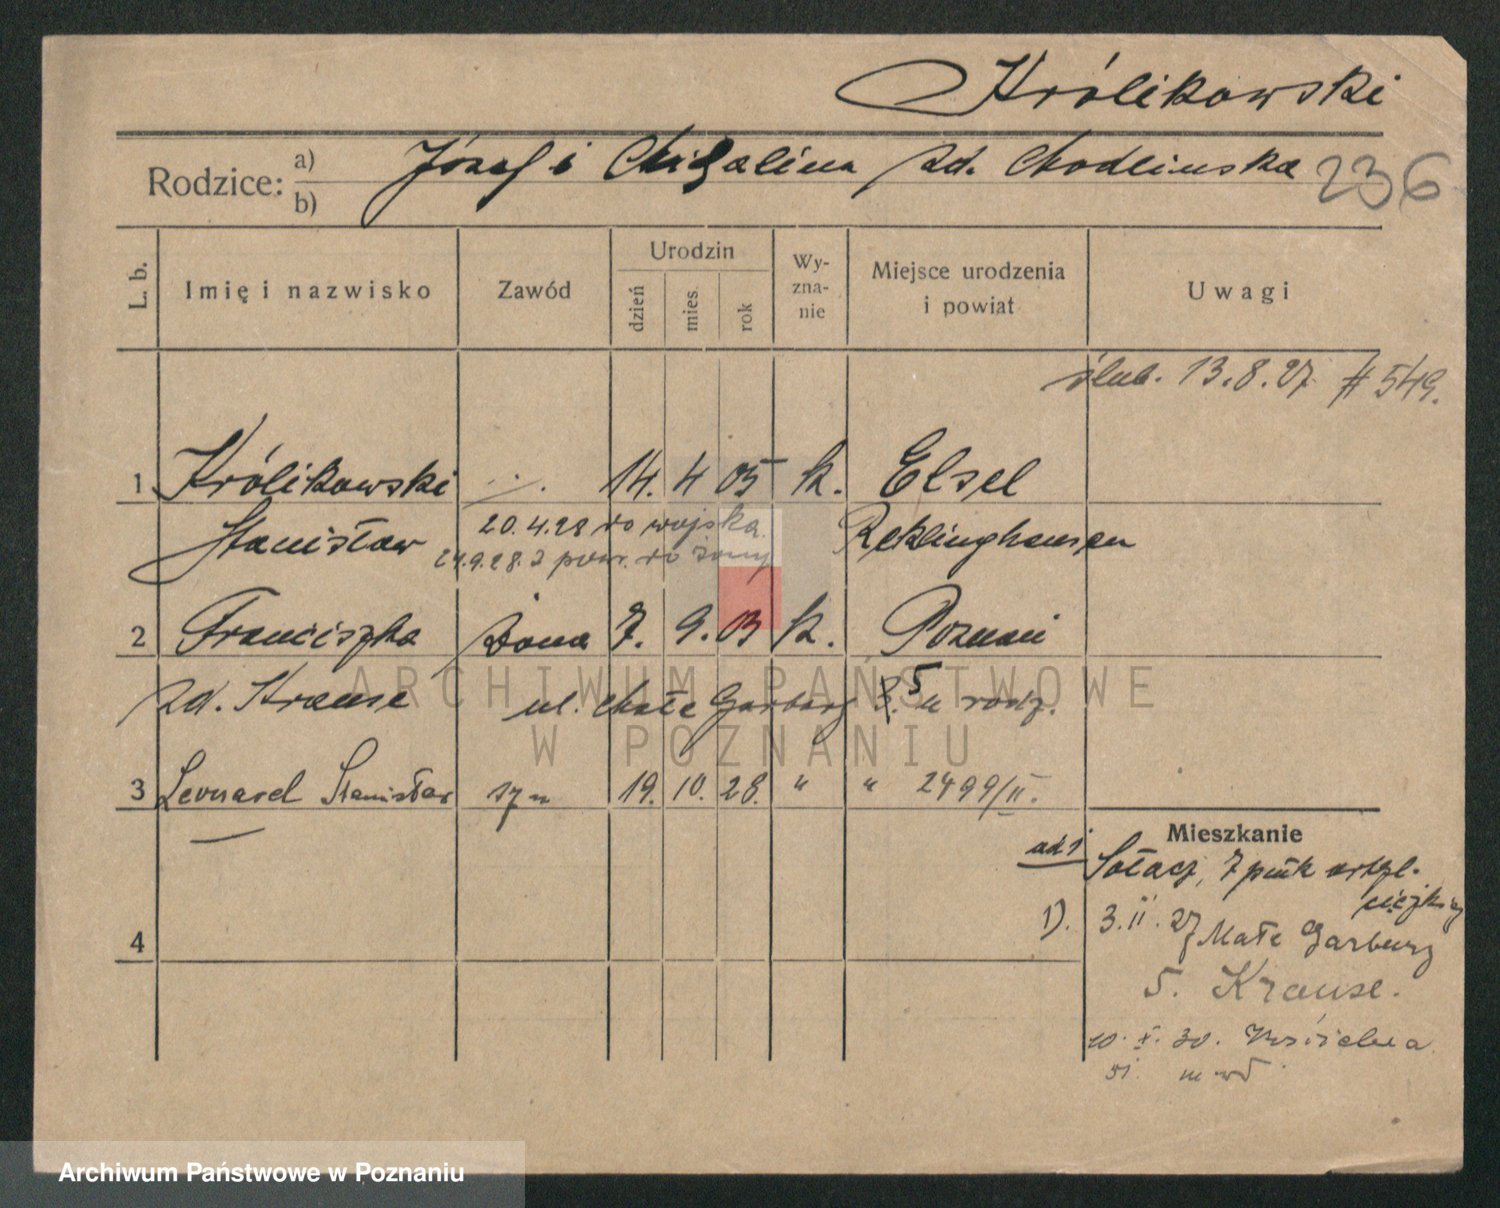 Królikowski
Rodzice: a) Józef i Michalina zd. Modlińska 236
b)
L. b. Imię i nazwisko Zawód Urodzin dzień mies. rok Wy-zna-nie Miejsce urodzenia i powiat Uwagi
ślub. 13.8.27 # 549.
1 Królikowski 14. 4 05 k. Elsel
Stanisław 20.4.28 do wojska. Reklinghausen
24.9.28. z pow. do żony
2 Franciszka żona 7. 9. 03 k. Poznań
zd. Krause ul. Małe Garbary 5 u rodz.
3 Leonard Stanisław syn 19. 10. 28. " " 2499/II.
Mieszkanie
ad 1 Sołacz, 7 pułk artyl.
ciężkiej
1). 3.II.27 Małe Garbary
4
5. Krause.
10. X. 30. Wrześńieńska
51. m. wł
ARCHIWUM PAŃSTWOWE
W POZNANIU
Archiwum Państwowe w Poznaniu